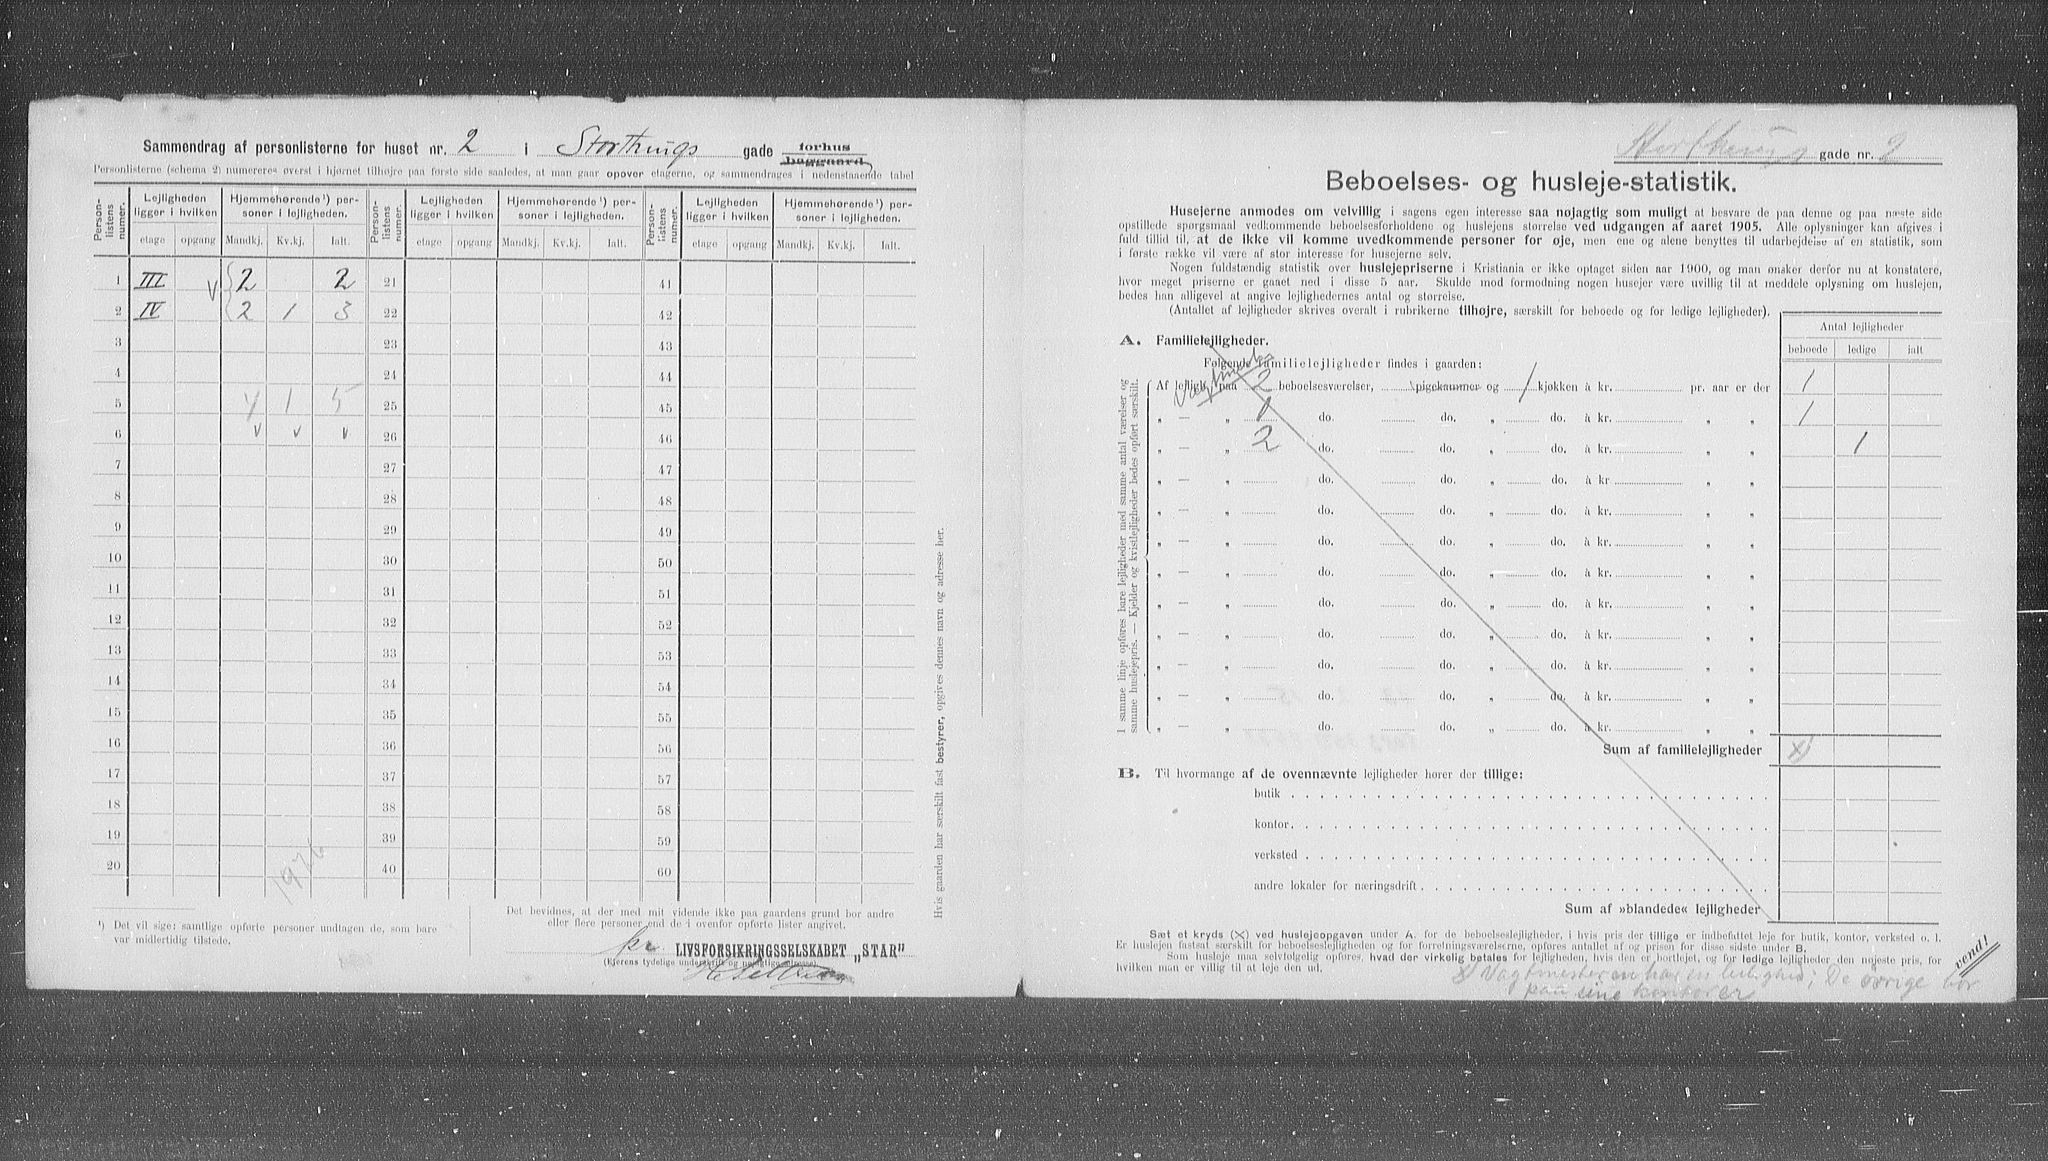 Sammendrag af personlisterne for huset nr. 2 i Storthings gade forhus
baggaard
Personlisterne (schema 2) numereres øverst i hjørnet tilhøjre paa første side saaledes, at man gaar opover etagerne, og sammendrages i nedenstaaende tabel
Person-listens numer. Lejligheden ligger i hvilken Hjemmehørende ¹) personer i lejligheden. Person-listens numer. Lejligheden ligger i hvilken Hjemmehørende ¹) personer i lejligheden. Person-listens numer. Lejligheden ligger i hvilken Hjemmehørende ¹) personer i lejligheden.
etage opgang Mandkj. Kv.kj. Ialt. etage opgang Mandkj. Kv.kj. Ialt. etage opgang Mandkj. Kv.kj. Ialt.
1 III 2 2 21 41
2 IV 2 1 3 22 42
3 23 43
4 24 44
5 4 1 5 25 45
6 v v v 26 46
7 27 47
8 28 48
9 29 49
10 30 50
11 31 51
12 32 52
13 33 53
14 34 54
15 35 55
16 36 56
17 37 57
18 38 58
19 39 59
20 40 60
¹) Det vil sige: samtlige opførte personer undtagen de, som bare
var midlertidig tilstede.
Det bevidnes, at der med mit vidende ikke paa gaardens grund bor andre
eller flere personer end de i ovenfor opførte lister angivet.
pr. LIVSFORSIKRINGSSELSKABET „STAR"
(Ejerens tydelige underskrift og nøjagtige adresse)
Hvis gaarden har særskilt fast bestyrer, opgives dennes navn og adresse her.
Storthings gade nr. 2
Beboelses- og husleje-statistik.
Husejerne anmodes om velvillig i sagens egen interesse saa nøjagtig som muligt at besvare de paa denne og paa næste side
opstillede spørgsmaal vedkommende beboelsesforholdene og huslejens størrelse ved udgangen af aaret 1905. Alle oplysninger kan afgives i
fuld tillid til, at de ikke vil komme uvedkommende personer for øje, men ene og alene benyttes til udarbejdelse af en statistik, som
i første række vil være af stor interesse for husejerne selv.
Nogen fuldstændig statistik over huslejepriserne i Kristiania er ikke optaget siden aar 1900, og man ønsker derfor nu at konstatere,
hvor meget priserne er gaaet ned i disse 5 aar. Skulde mod formodning nogen husejer være uvillig til at meddele oplysning om huslejen,
bedes han alligevel at angive lejlighedernes antal og størrelse.
(Antallet af lejligheder skrives overalt i rubrikerne tilhøjre, særskilt for beboede og for ledige lejligheder).
Antal lejligheder
beboede ledige ialt
A. Familielejligheder.
Følgende familielejligheder findes i gaarden:
Af lejligh. paa 2 beboelsesværelser, pigekammer og 1 kjøkken à kr. pr. aar er der 1
„ — „ 1 do. do. „ do. à kr. „ „ 1
„ — „ 2 do. do. „ do. à kr. „ „ 1
„ — „ do. do. „ do. à kr. „ „
„ — „ do. do. „ do. à kr. „ „
„ — „ do. do. „ do. à kr. „ „
„ — „ do. do. „ do. à kr. „ „
„ — „ do. do. „ do. à kr. „ „
„ — „ do. do. „ do. à kr. „ „
„ — „ do. do. „ do. à kr. „ „
„ — „ do. do. „ do. à kr. „ „
„ — „ do. do. „ do. à kr. „ „
I samme linje opføres bare lejligheder med samme antal værelser og
samme huslejepris. — Kjelder og kvistlejligheder bedes opført særskilt.
Sum af familielejligheder x)
B. Til hvormange af de ovennævnte lejligheder hører der tillige:
butik
kontor
verksted
andre lokaler for næringsdrift
Sum af »blandede« lejligheder
Sæt et kryds (X) ved huslejeopgaven under A. for de beboelseslejligheder, i hvis pris der tillige er indbefattet leje for butik, kontor, verksted o. l.
Er huslejen fastsat særskilt for beboelseslejligheden og for forretningsværelserne, opføres antallet af og prisen for disse sidste under B.
Som husleje maa selvfølgelig opføres, hvad der virkelig betales for lejligheden, hvis den er bortlejet, og for ledige lejligheder den nøjeste pris, for
hvilken man er villig til at leje den ud.
vend!
x) Vagtmesteren har en leilighed; De øvrige bor
paa sine kontorer